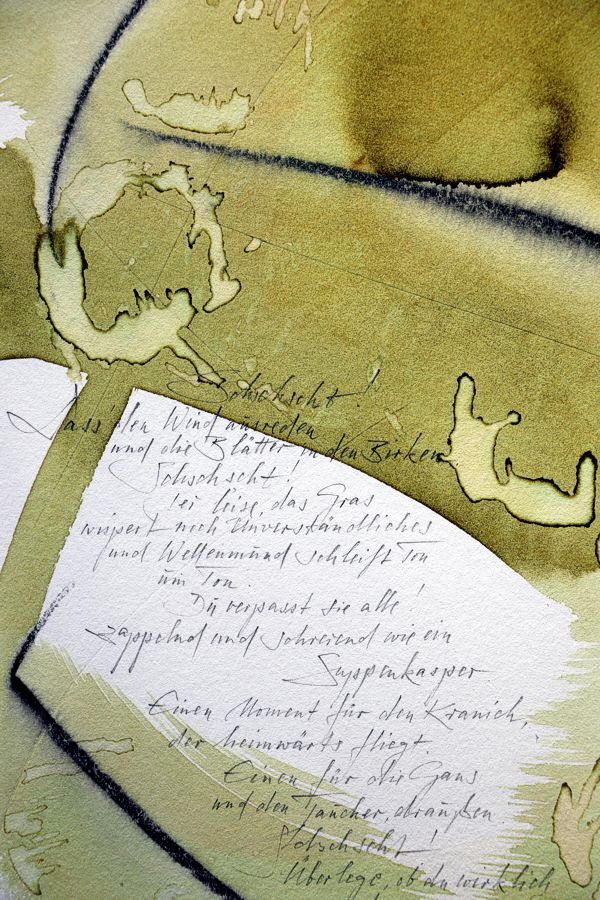 Schschscht!
Lass' den Wind ausreden
und die Blätter in den Birken
Schschscht!
Sei leise, das Gras
wispert noch Unverständliches
und Wellenmund schleift Ton
um Ton.
Du verpasst sie alle!
zappelnd und schreiend wie ein
Suppenkasper
Einen Moment für den Kranich,
der heimwärts fliegt.
Einen für die Gans
und den Taucher, draußen
Schschscht!
Überlege, ob du wirklich